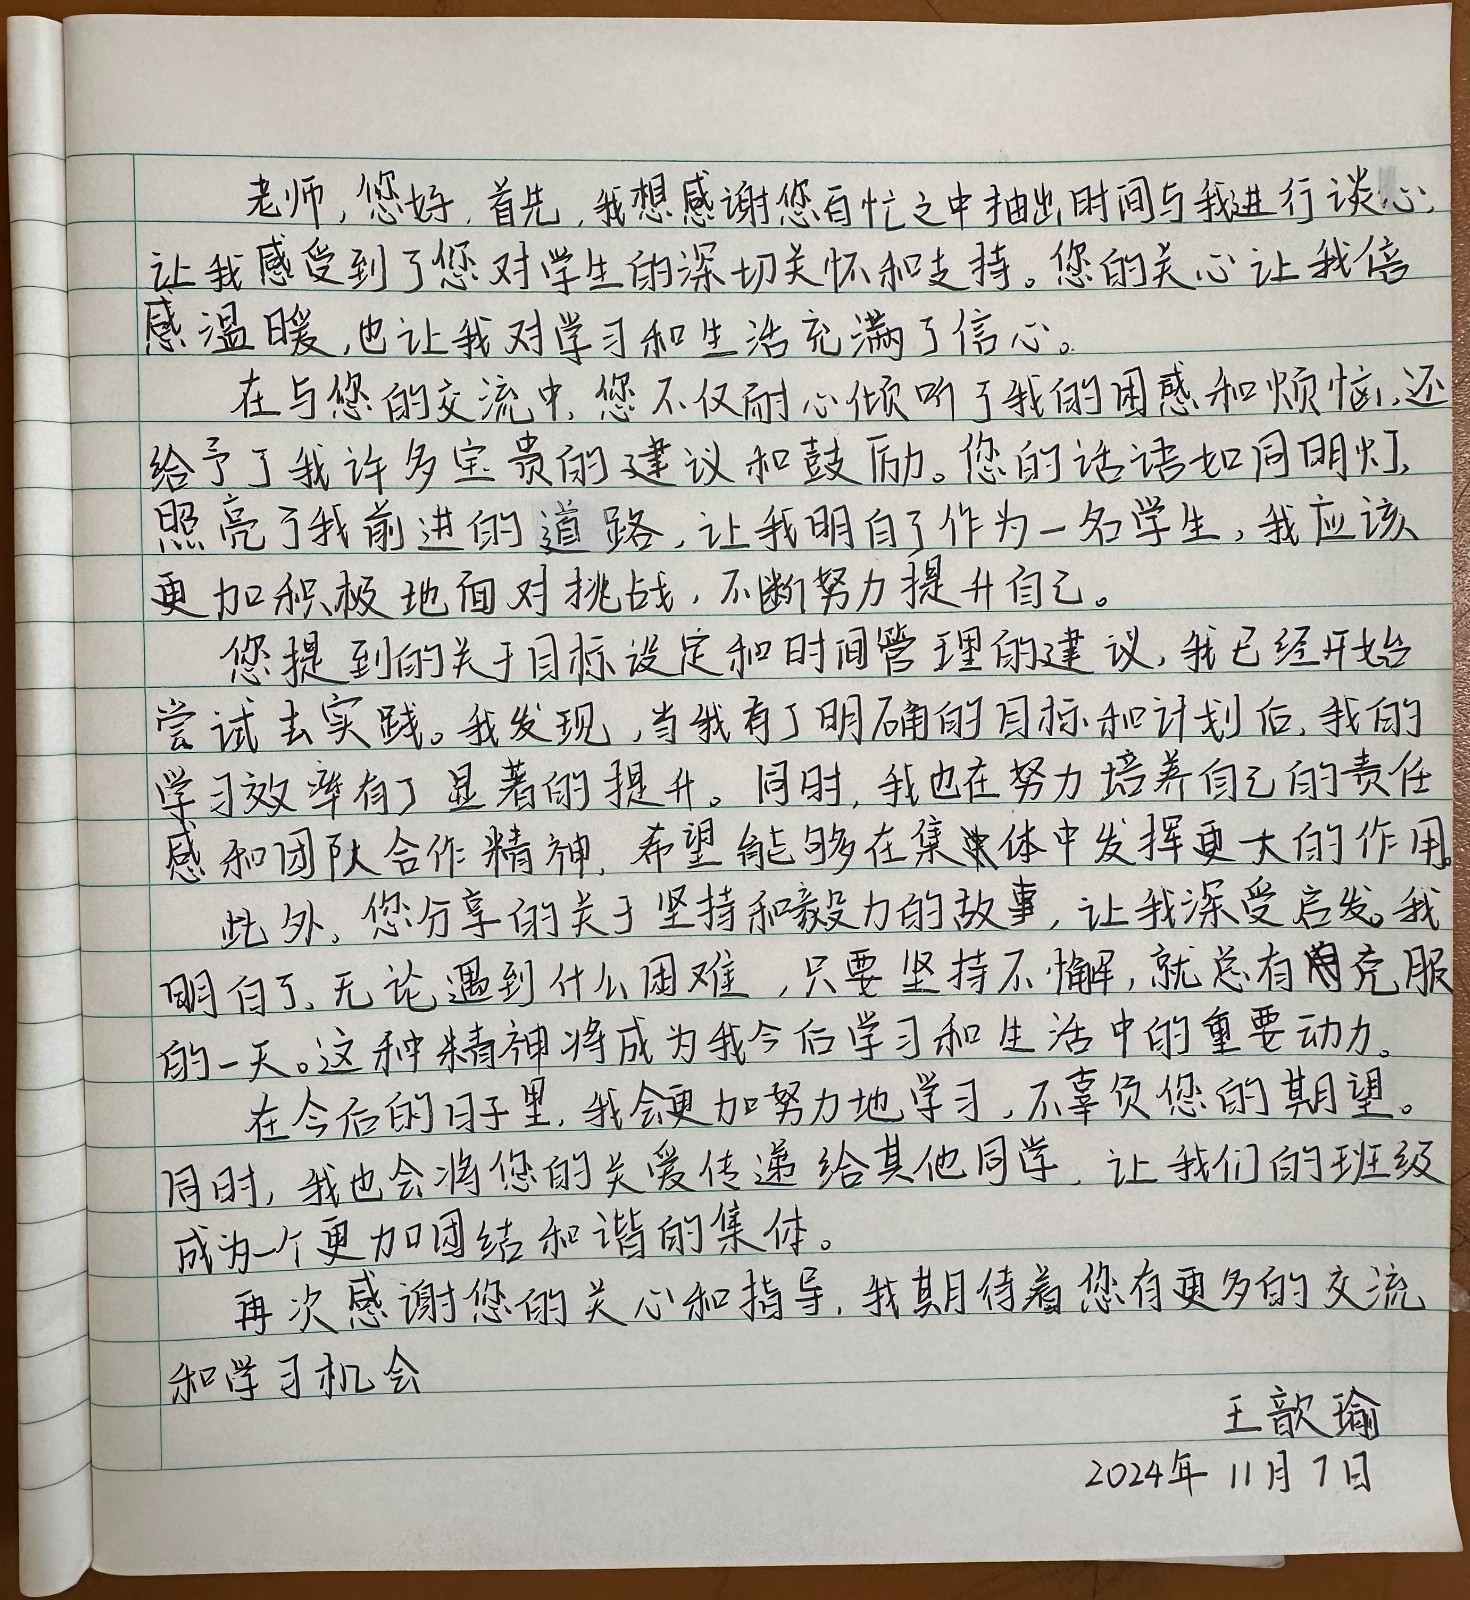 老师，您好，首先，我想感谢您百忙之中抽出时间与我进行谈心，
让我感受到了您对学生的深切关怀和支持。您的关心让我倍
感温暖，也让我对学习和生活充满了信心。
在与您的交流中，您不仅耐心倾听了我的困惑和烦恼，还
给予了我许多宝贵的建议和鼓励。您的话语如同明灯，
照亮了我前进的道路，让我明白了作为一名学生，我应该
更加积极地面对挑战，不断努力提升自己。
您提到的关于目标设定和时间管理的建议，我已经开始
尝试去实践。我发现，当我有了明确的目标和计划后，我的
学习效率有了显著的提升。同时，我也在努力培养自己的责任
感和团队合作精神，希望能够在集体中发挥更大的作用。
此外，您分享的关于坚持和毅力的故事，让我深受启发。我
明白了，无论遇到什么困难，只要坚持不懈，就总有克服
的一天。这种精神将成为我今后学习和生活中的重要动力。
在今后的日子里，我会更加努力地学习，不辜负您的期望。
同时，我也会将您的关爱传递给其他同学，让我们的班级
成为一个更加团结和谐的集体。
再次感谢您的关心和指导，我期待着您有更多的交流
和学习机会
王歆瑜
2024年11月7日